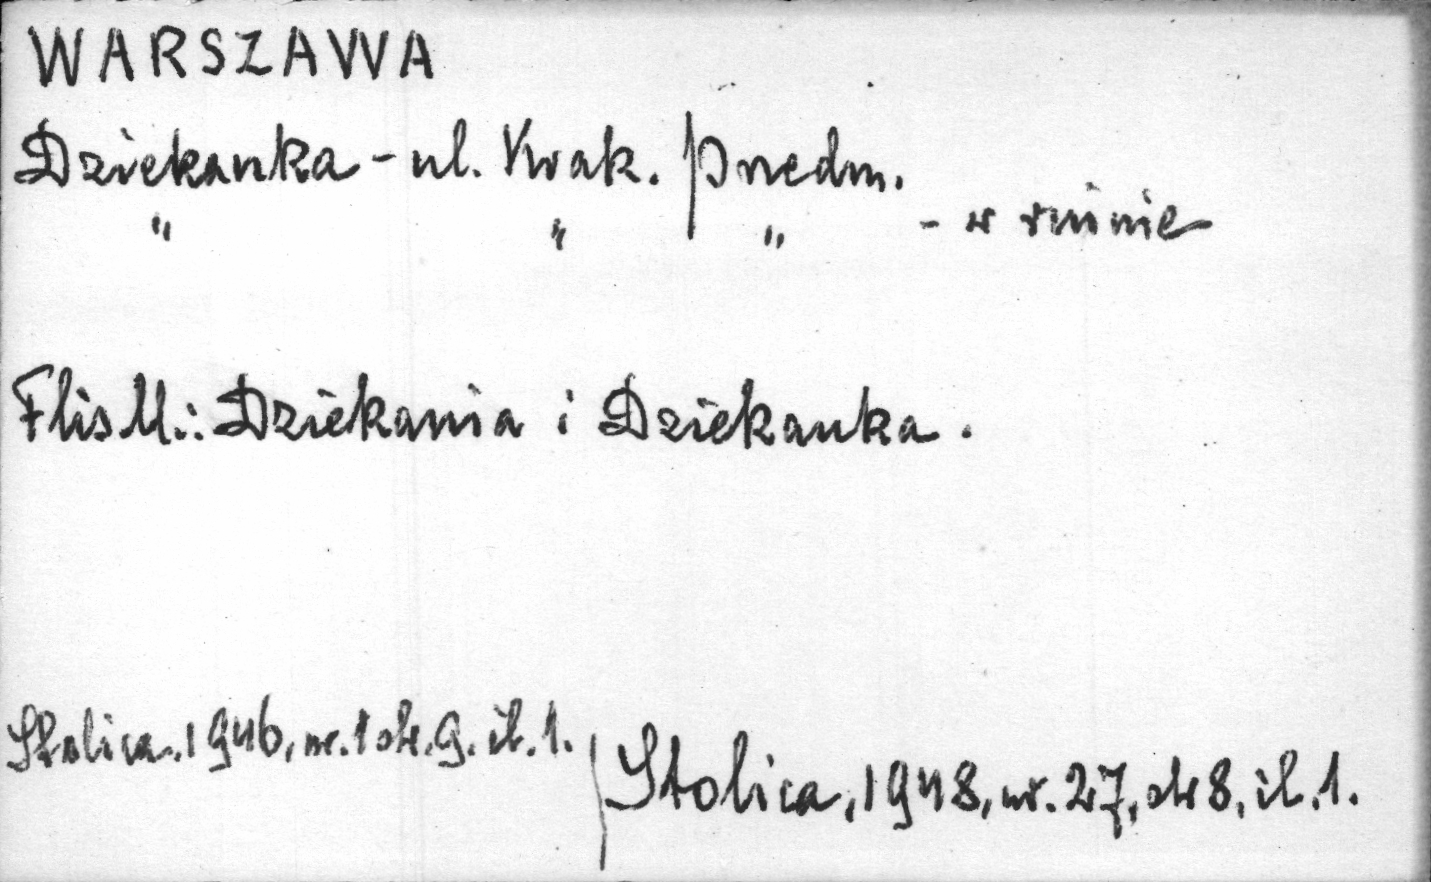 WARSZAWA
Dziekanka - ul. Krak. Przedm.
" " " - w ruinie
Flis M.: Dziekania i Dziekanka.
Stolica. 1946, nr. 1 str. 9. il. 1.
Stolica, 1948, nr. 27, str 8, il. 1.